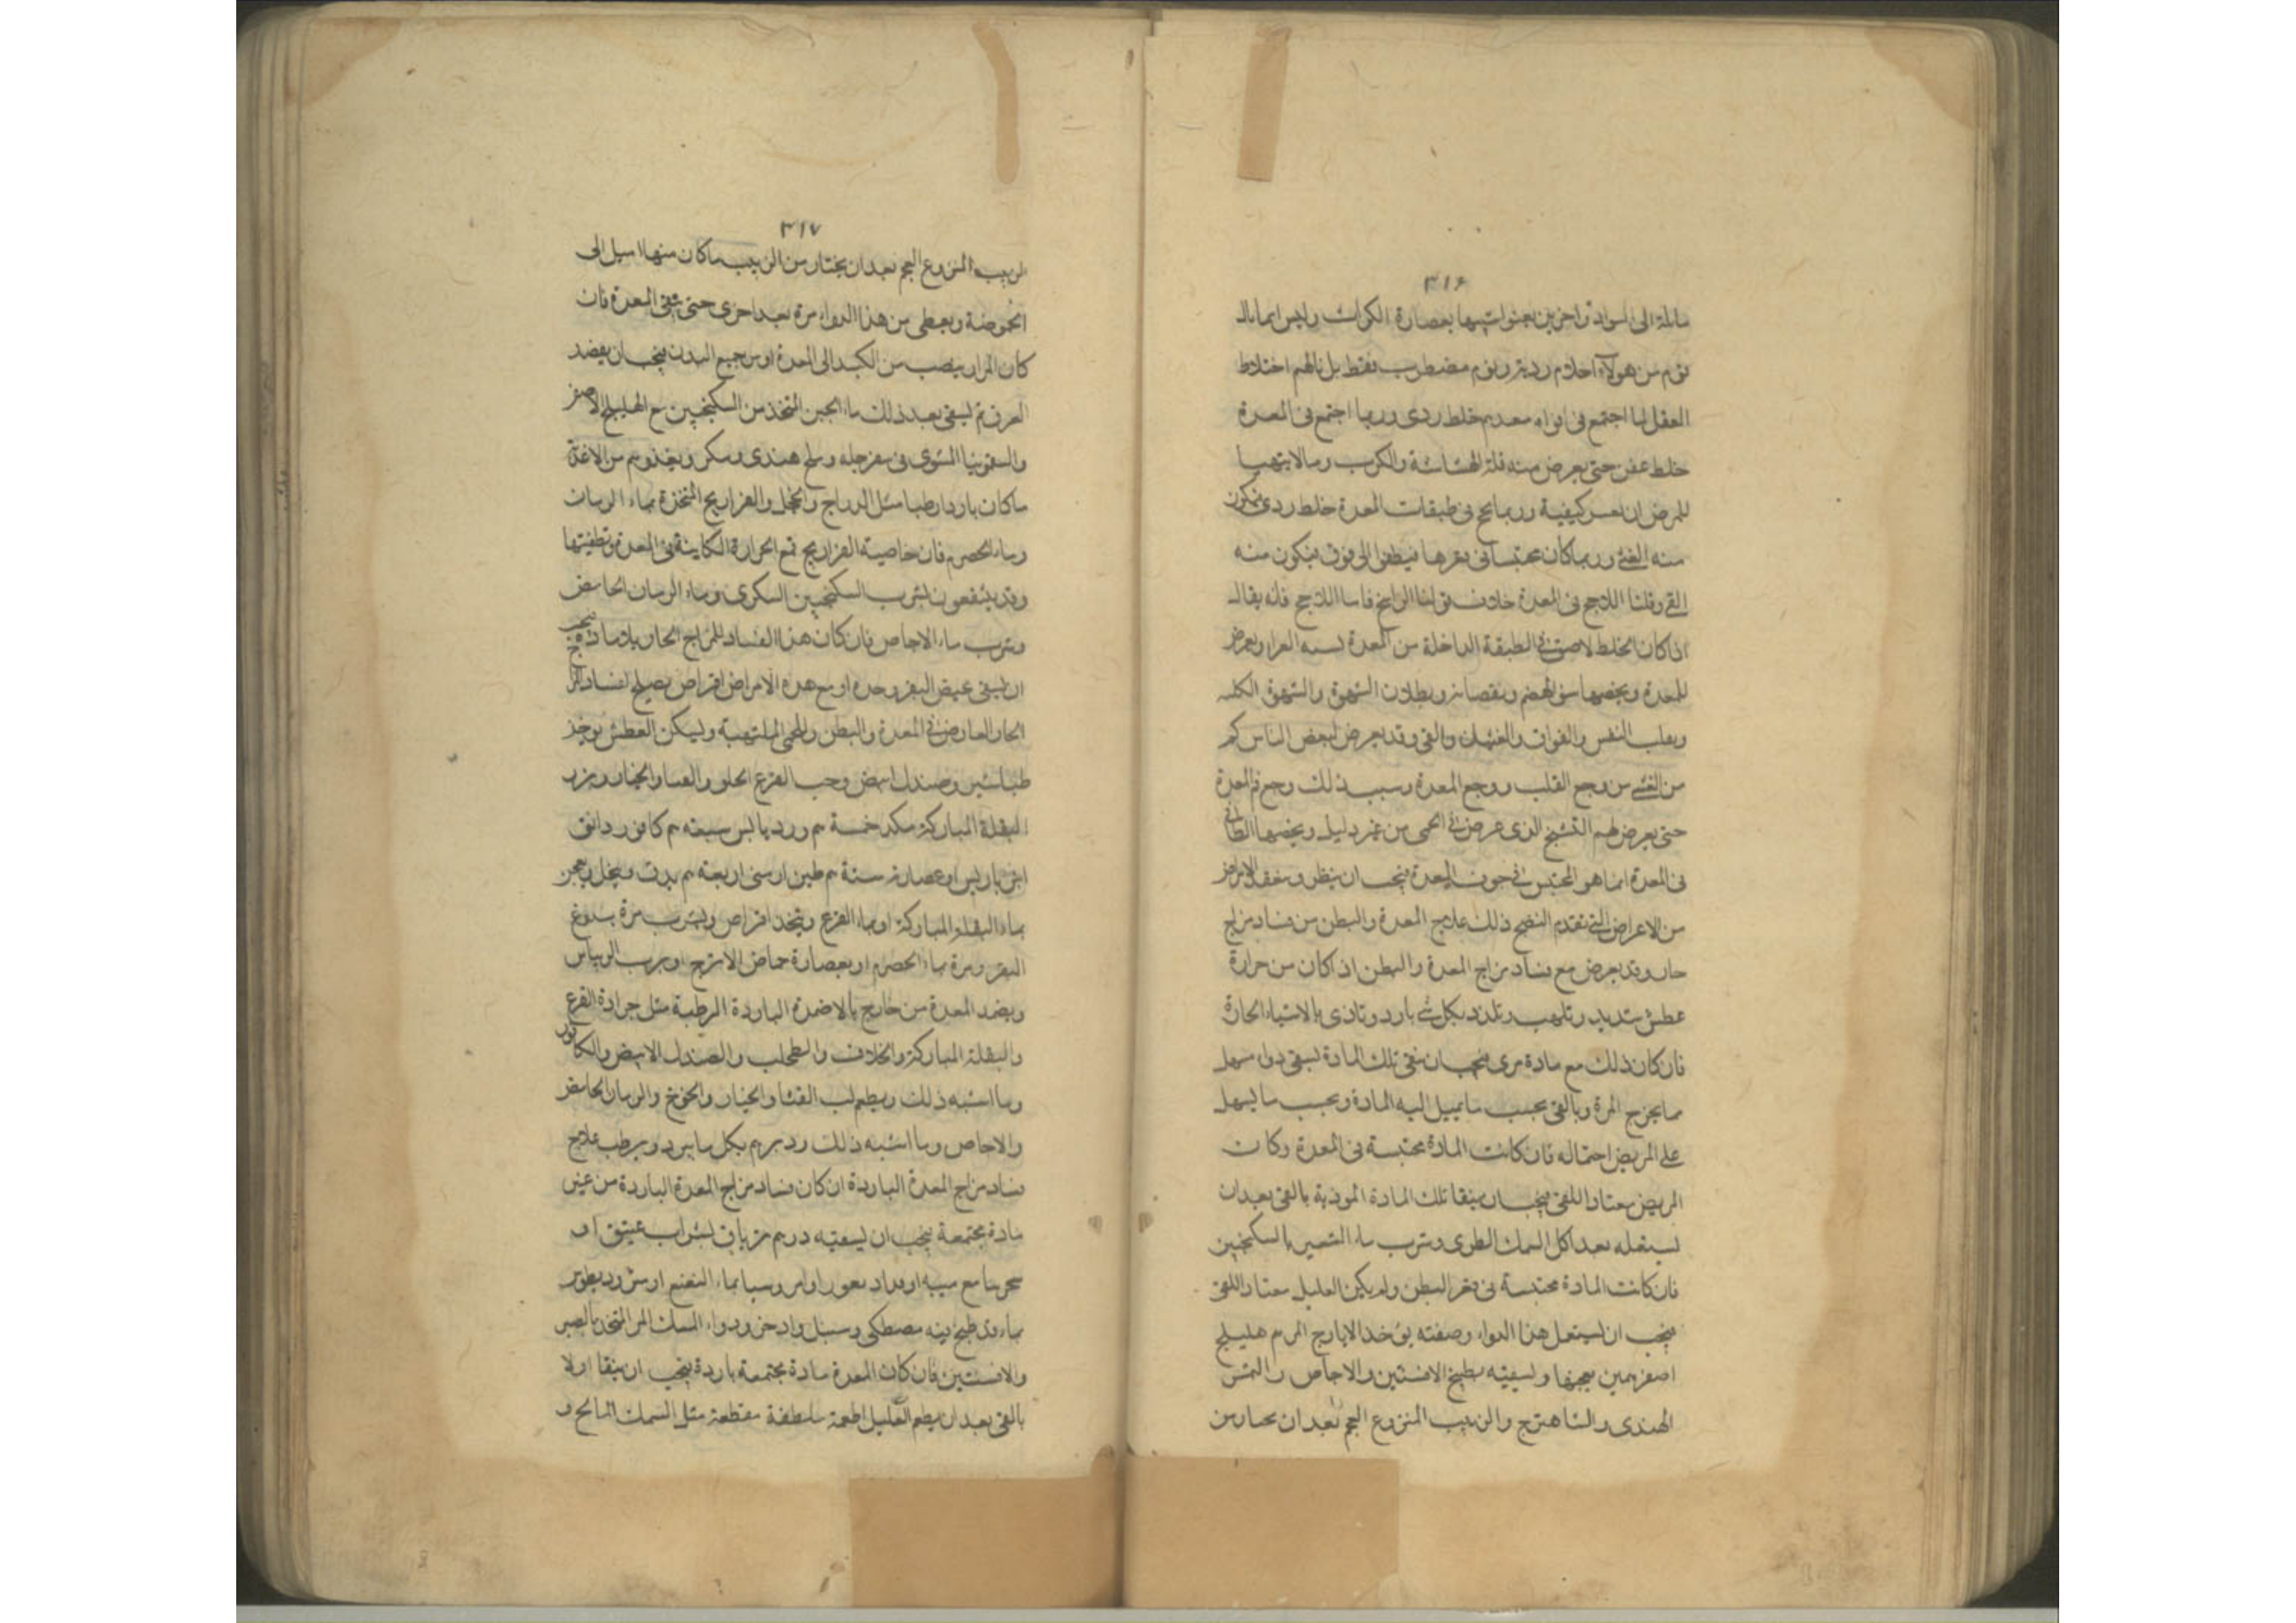 ٣١٦
مائلة الى السواد واخرين يعثوات شبيها بعصارة الكراث وليس انما ينال
قوم من هولاء احلام ردية ونوم مضطرب فقط بل نالهم اختلاط
العقل لما اجتمع فى افواه معدهم خلط ردى وربما اجتمع فى المعدة
خلط عفن حتى يعرض منه قلة الهشاشة والكرب وما لا يتهيا
للمرض ان كيفية وربما لحج فى طبقات المعدة خلط ردى فيكون
منه الغثى وربما كان محتبسا فى قعرها فيطفوا الى فوق فيكون منه
القى وقلنا اللاحج فى المعدة خلاف قولنا الراسخ فاما اللاحج فانه يقال
اذا كان الخلط لاصق فى الطبقة الداخلة من المعدة ويعرض
للمعدة ويخصها سوء الهضم ونقصانه وبطلان الشهوة والشهوة الكلبية
وتقلب النفس والفواق والغثيان والقى وقد يعرض لبعض الناس كم
من الغثى من وجع القلب ووجع المعدة وسبب ذلك وجع فم المعدة
حتى يعرض لهم التشنج الذى عرض فى الحمى من غير دليل ويخصها الطافى
فى المعدة انما هو المحتبس فى جوف المعدة فيجب ان ينظر
من الاعراض التى تقدم النضج ذلك علاج المعدة والبطن من فساد مزاج
حار وقد يعرض مع فساد مزاج المعدة والبطن اذا كان من حرارة
عطش شديد وتلهب وتلذذ بكل شى بارد وتاذى بالاشياء الحارة
فان كان ذلك مع مادة مرى فيجب ان ينقى تلك المادة لسقى دواء مسهل
مما يخرج المرة وبالقى بحسب ما يميل اليه المادة وبحسب ما يسهل
على المريض احتماله فان كانت المادة محتبسة فى المعدة وكان
المريض معتادا للقى فيجب ان ينقا تلك المادة الموذية بالقى بعد ان
يستعمله بعد اكل السمك الطرى وشرب ماء الشعير بالسكنجبين
فان كانت المادة محتبسة فى قعر البطن ولم يكن العليل معتادا للقى
فيجب ان يستعمل هذا الدواء وصفته يوخذ الايارج المر م هليلج
اصفر همين يعجنها ويسقيه بطبيخ الافسنتين والاجاص والتمر
الهندى والشاهترج والزبيب المنزوع العجم بعد ان يختار من
٣١٧
الزبيب المنزوع العجم بعد ان يختار من الزبيب ما كان منها اميل الى
الحموضة ويعطى من هذا الدواء مرة بعد اخرى حتى ينقى المعدة فان
كان المرار ينصب من الكبد الى المعدة او من جميع البدن فيجب ان يفصد
العرق ثم يسقى بعد ذلك ماء الجبن المتخذ من السكنجبين مع الهليلج الاصفر
والسقمونيا المشوى فى سفرجلة وملح هندى وسكر ويغذوهم من الاغذية
ما كان باردا رطبا مثل الدراج والحجل والفراريج المتخذة بماء الرمان
وماء الحصرم فان خاصية الفراريج قمع الحرارة الكاينة فى المعدة وتطفيتها
وقد ينتفعون بشرب السكنجبين السكرى وماء الرمان الحامض
وشرب ماء الاجاص فان كان هذا الفساد للمزاج الحار بلا مادة فيجب
ان يسقى مخيض البقر وحده او مع هذه الاقراص اقراص يصلح لفساد المزاج
الحار العارض فى المعدة والبطن والحمى الملتهبة ويسكن العطش يوخذ
طباشير وصندل ابيض وحب القرع الحلو والقثا والخيار وبزر
البقلة المباركة مكد خمسة م ورد يابس سبعة م كافور دانق
انبرباريس او عصارته ستة م طين ارمنى اربعة م يدق وينخل ويعجن
بماء البقلة المباركة او بماء القرع ويتخذ اقراص ويشرب مرة بدوغ
البقر ومرة بماء الحصرم او بعصارة حماض الاترج او برب الريباس
ويضمد المعدة من خارج بالاضمدة الباردة الرطبة مثل جرادة القرع
والبقلة المباركة والخلاف والطحلب والصندل الابيض والكافور
وما اشبه ذلك ويطعم لب القثا والخيار والخوخ والرمان الحامض
والاجاص وما اشبه ذلك ودبرهم بكل ما يبرد ويرطب علاج
فساد مزاج المعدة الباردة ان كان فساد مزاج المعدة الباردة من غير
مادة مجتمعة فيجب ان يسقيه درهم ترياق بشراب عتيق او
سحرينا مع ميبه او بماء النعنع او مثروديطوس
بماء قد طبخ فيه مصطكى وسنبل واذخر ودواء المسك المر المتخذ بالصبر
والافسنتين فان كان المعدة مادة مجتمعة باردة فيجب ان ينقا اولا
بالقى بعد ان يطعم العليل اطعمة ملطفة مقطعة مثل السمك المالح و